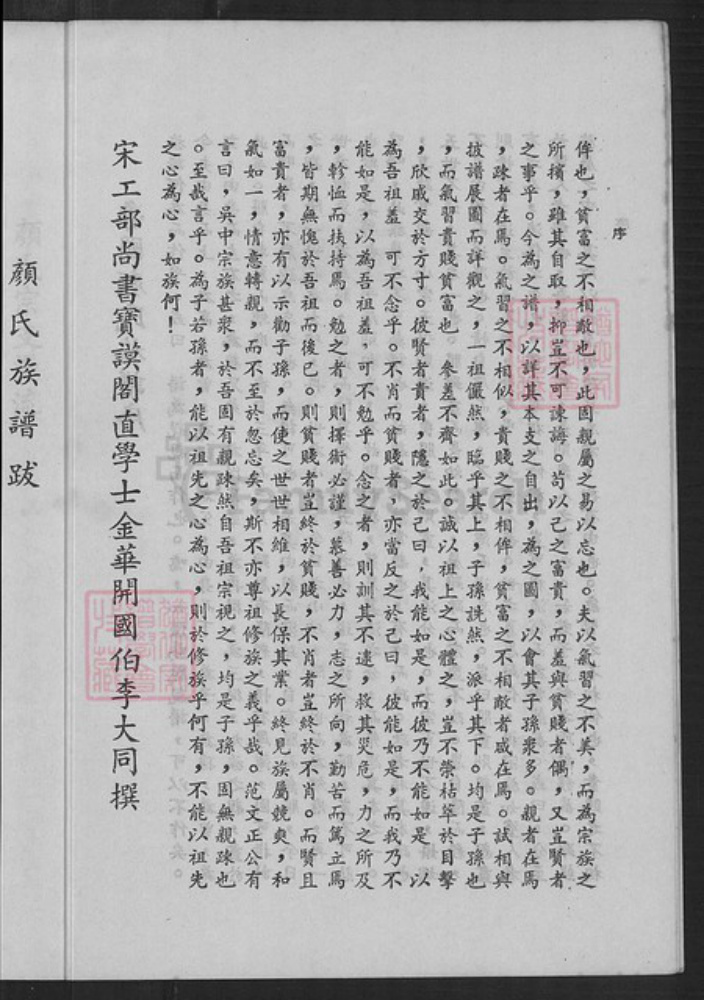 序
侔也，貧富之不相敵也，此固親屬之易以忘也。夫以氣習之不美，而為宗族之
所擯，雖其自取，抑豈不可諫誨。苟以己之富貴，而羞與貧賤者偶，又豈賢者
之事乎。今為之譜，以詳其本支之自出，為之圖，以會其子孫衆多。親者在焉
，疎者在焉。氣習之不相似，貴賤之不相侔，貧富之不相敵者咸在焉。試相與
披譜展圖而詳觀之，一祖儼然，臨乎其上，子孫詵然，派乎其下。均是子孫也
，而氣習貴賤貧富也，參差不齊如此。誠以祖上之心體之，豈不榮枯萃於目擊
，欣戚交於方寸。彼賢者貴者，隱之於己曰，我能如是，而彼乃不能如是，以
為吾祖羞，可不念乎。不肖而貧賤者，亦當反之於己曰，彼能如是，而我乃不
能如是，以為吾祖羞，可不勉乎。念之者，則訓其不逮，救其災危，力之所及
，軫恤而扶持焉。勉之者，則擇術必謹，慕善必力，志之所向，勤苦而篤立焉
，皆期無愧於吾祖而後已。則貧賤者豈終於貧賤，不肖者豈終於不肖。而賢且
富貴者，亦有以示勸子孫，而使之世世相維，以長保其業。終見族屬競爽，和
氣如一，情意轉親，而不至於忽忘矣，斯不亦尊祖修族之義乎哉。范文正公有
言曰，吳中宗族甚衆，於吾固有親疎然自吾祖宗視之，均是子孫，固無親疎也
。至哉言乎。為子若孫者，能以祖先之心為心，則於修族乎何有，不能以祖先
之心為心，如族何！
宋工部尚書寶謨閣直學士金華開國伯李大同撰
顏氏族譜跋